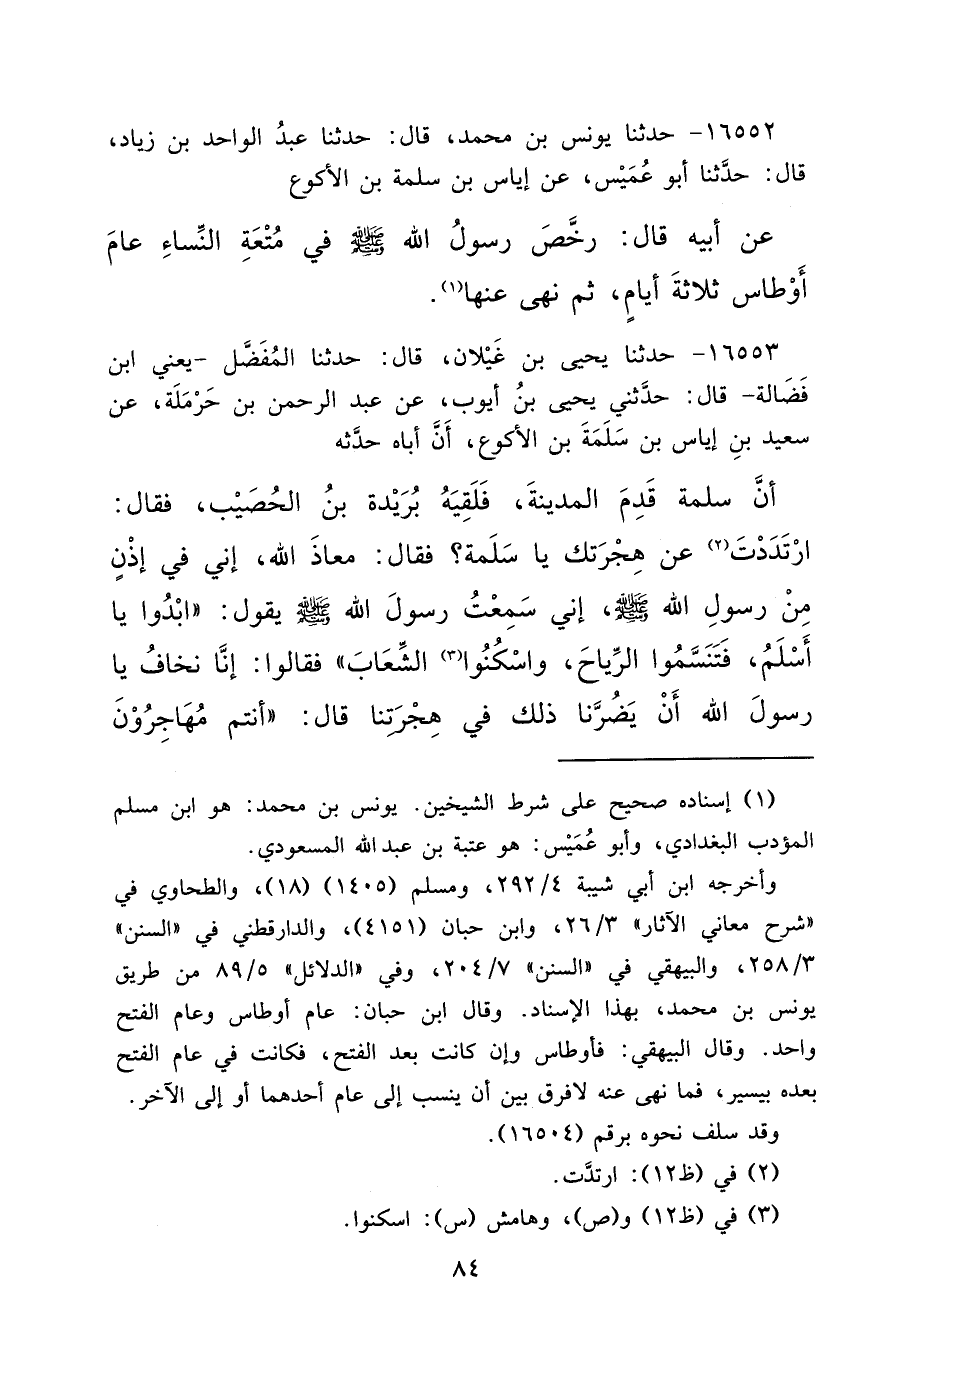 ١٦٥٥٢- حدثنا يونس بن محمد، قال: حدثنا عبدُ الواحد بن زياد،
قال: حدَّثنا أبو عُمَيْس، عن إياس بن سلمة بن الأكوع
عن أبيه قال: رخَّصَ رسولُ الله ﷺ في مُتْعَةِ النِّساءِ عامَ
أَوْطاس ثلاثةَ أيامٍ، ثم نهى عنها(١).
١٦٥٥٣- حدثنا يحيى بن غَيْلان، قال: حدثنا المُفَضَّل -يعني ابن
فَضَالة- قال: حدَّثني يحيى بنُ أيوب، عن عبد الرحمن بن حَرْمَلَة، عن
سعيد بنِ إياس بن سَلَمَةَ بن الأكوع، أَنَّ أباه حدَّثه
أنَّ سلمة قَدِمَ المدينةَ، فَلَقِيَهُ بُرَيْدة بنُ الحُصَيْب، فقال:
ارْتَدَدْتَ(٢) عن هِجْرَتك يا سَلَمة؟ فقال: معاذَ الله، إني في إذْنٍ
مِنْ رسولِ الله ﷺ، إني سَمِعْتُ رسولَ الله ﷺ يقول: «ابْدُوا يا
أَسْلَمُ، فَتَنَسَّمُوا الرِّياحَ، واسْكُنُوا(٣) الشِّعَابَ» فقالوا: إنَّا نخافُ يا
رسولَ الله أَنْ يَضُرَّنا ذلك في هِجْرَتِنا قال: «أنتم مُهَاجِرُوْنَ
(١) إسناده صحيح على شرط الشيخين. يونس بن محمد: هو ابن مسلم
المؤدب البغدادي، وأبو عُمَيْس: هو عتبة بن عبد الله المسعودي.
وأخرجه ابن أبي شيبة ٢٩٢/٤، ومسلم (١٤٠٥) (١٨)، والطحاوي في
«شرح معاني الآثار» ٢٦/٣، وابن حبان (٤١٥١)، والدارقطني في «السنن»
٢٥٨/٣، والبيهقي في «السنن» ٢٠٤/٧، وفي «الدلائل» ٨٩/٥ من طريق
يونس بن محمد، بهذا الإسناد. وقال ابن حبان: عام أوطاس وعام الفتح
واحد. وقال البيهقي: فأوطاس وإن كانت بعد الفتح، فكانت في عام الفتح
بعده بيسير، فما نهى عنه لافرق بين أن ينسب إلى عام أحدهما أو إلى الآخر.
وقد سلف نحوه برقم (١٦٥٠٤).
(٢) في (ظ١٢): ارتدَّت.
(٣) في (ظ١٢) و(ص)، وهامش (س): اسكنوا.
٨٤